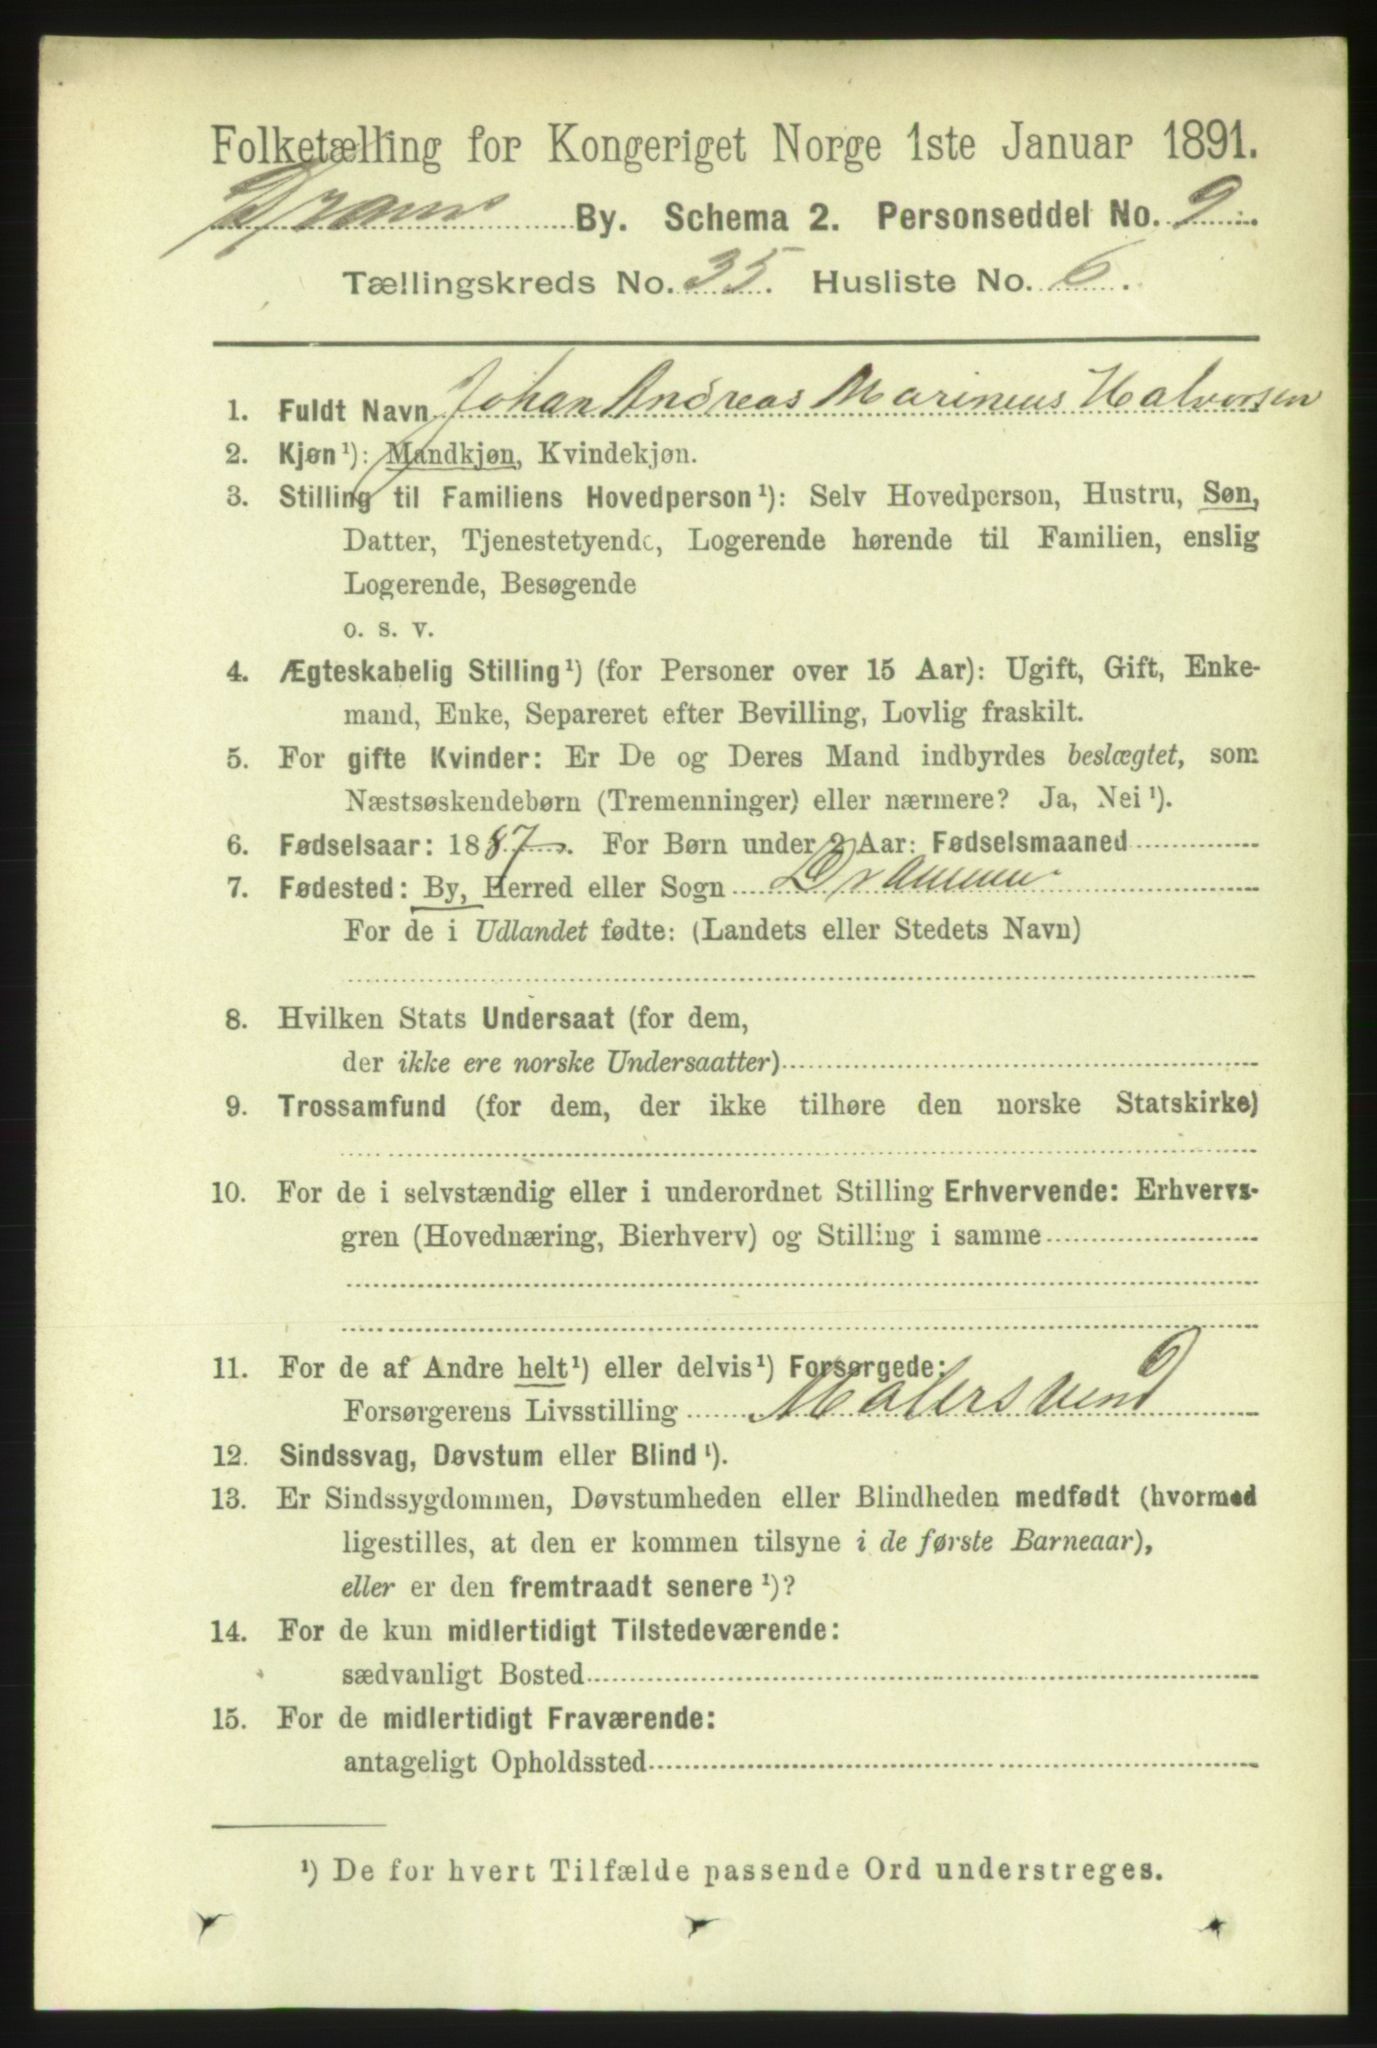 Folketælling for Kongeriget Norge 1ste Januar 1891.
Drams By. Schema 2. Personseddel No. 9.
Tællingskreds No. 35. Husliste No. 6.
1. Fuldt Navn Johan Andreas Marinius Halvorsen
2. Kjøn¹): Mandkjøn, Kvindekjøn.
3. Stilling til Familiens Hovedperson¹): Selv Hovedperson, Hustru, Søn,
Datter, Tjenestetyende, Logerende hørende til Familien, enslig
Logerende, Besøgende
o. s. v.
4. Ægteskabelig Stilling¹) (for Personer over 15 Aar): Ugift, Gift, Enke-
mand, Enke, Separeret efter Bevilling, Lovlig fraskilt.
5. For gifte Kvinder: Er De og Deres Mand indbyrdes beslægtet, som
Næstsøskendebørn (Tremenninger) eller nærmere? Ja, Nei¹).
6. Fødselsaar: 1887. For Børn under 2 Aar: Fødselsmaaned
7. Fødested: By, Herred eller Sogn Drammen
For de i Udlandet fødte: (Landets eller Stedets Navn)
8. Hvilken Stats Undersaat (for dem,
der ikke ere norske Undersaatter)
9. Trossamfund (for dem, der ikke tilhøre den norske Statskirke)
10. For de i selvstændig eller i underordnet Stilling Erhvervende: Erhvervs-
gren (Hovednæring, Bierhverv) og Stilling i samme
11. For de af Andre helt¹) eller delvis¹) Forsørgede:
Forsørgerens Livsstilling Malersvend
12. Sindssvag, Døvstum eller Blind¹).
13. Er Sindssygdommen, Døvstumheden eller Blindheden medfødt (hvormed
ligestilles, at den er kommen tilsyne i de første Barneaar),
eller er den fremtraadt senere¹)?
14. For de kun midlertidigt Tilstedeværende:
sædvanligt Bosted
15. For de midlertidigt Fraværende:
antageligt Opholdssted
¹) De for hvert Tilfælde passende Ord understreges.